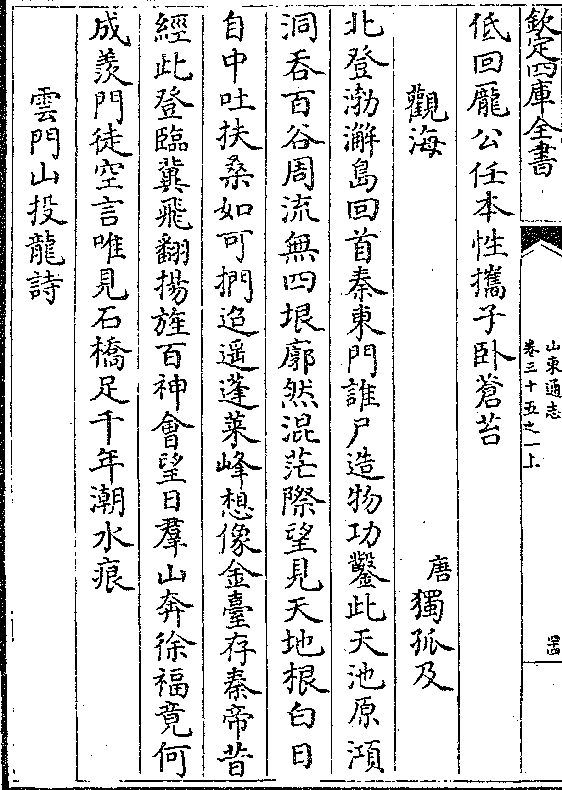 欽定四庫全書
山東通志
卷三十五之一上
低回龐公任本性攜子卧蒼苔
觀海
唐
獨孤及
北登渤澥島回首秦東門誰尸造物功鑿此天池原澒
洞吞百谷周流無四垠廓然混茫際望見天地根白日
自中吐扶桑如可捫迢遥蓬莱峰想像金臺存秦帝昔
經此登臨冀飛翻揚旌百神會望日羣山奔徐福竟何
成羨門徒空言唯見石橋足千年潮水痕
雲門山投龍詩